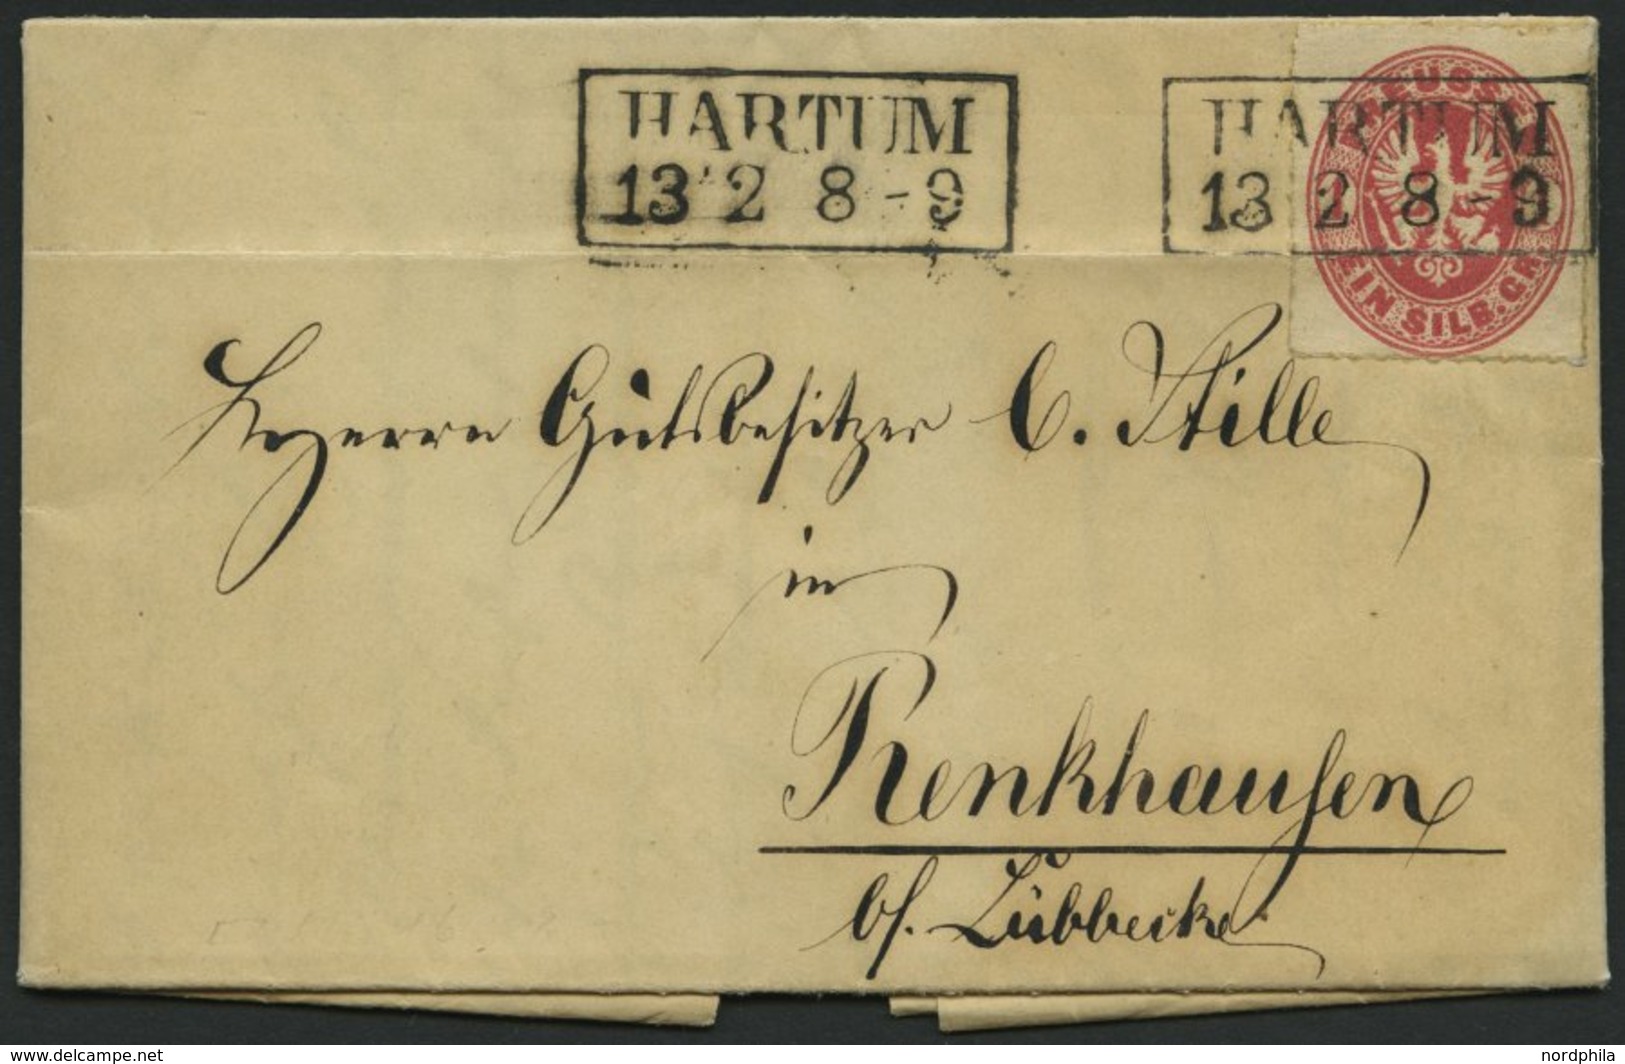 HARTUM
13 2 8-9
HARTUM
13 2 8-9
PREUSSEN
EIN SILB. GR.
Herrn Gutsbesitzer C. Stille
in
Renkhausen
b/. Lübbecke
www.delcampe.net
nordphila